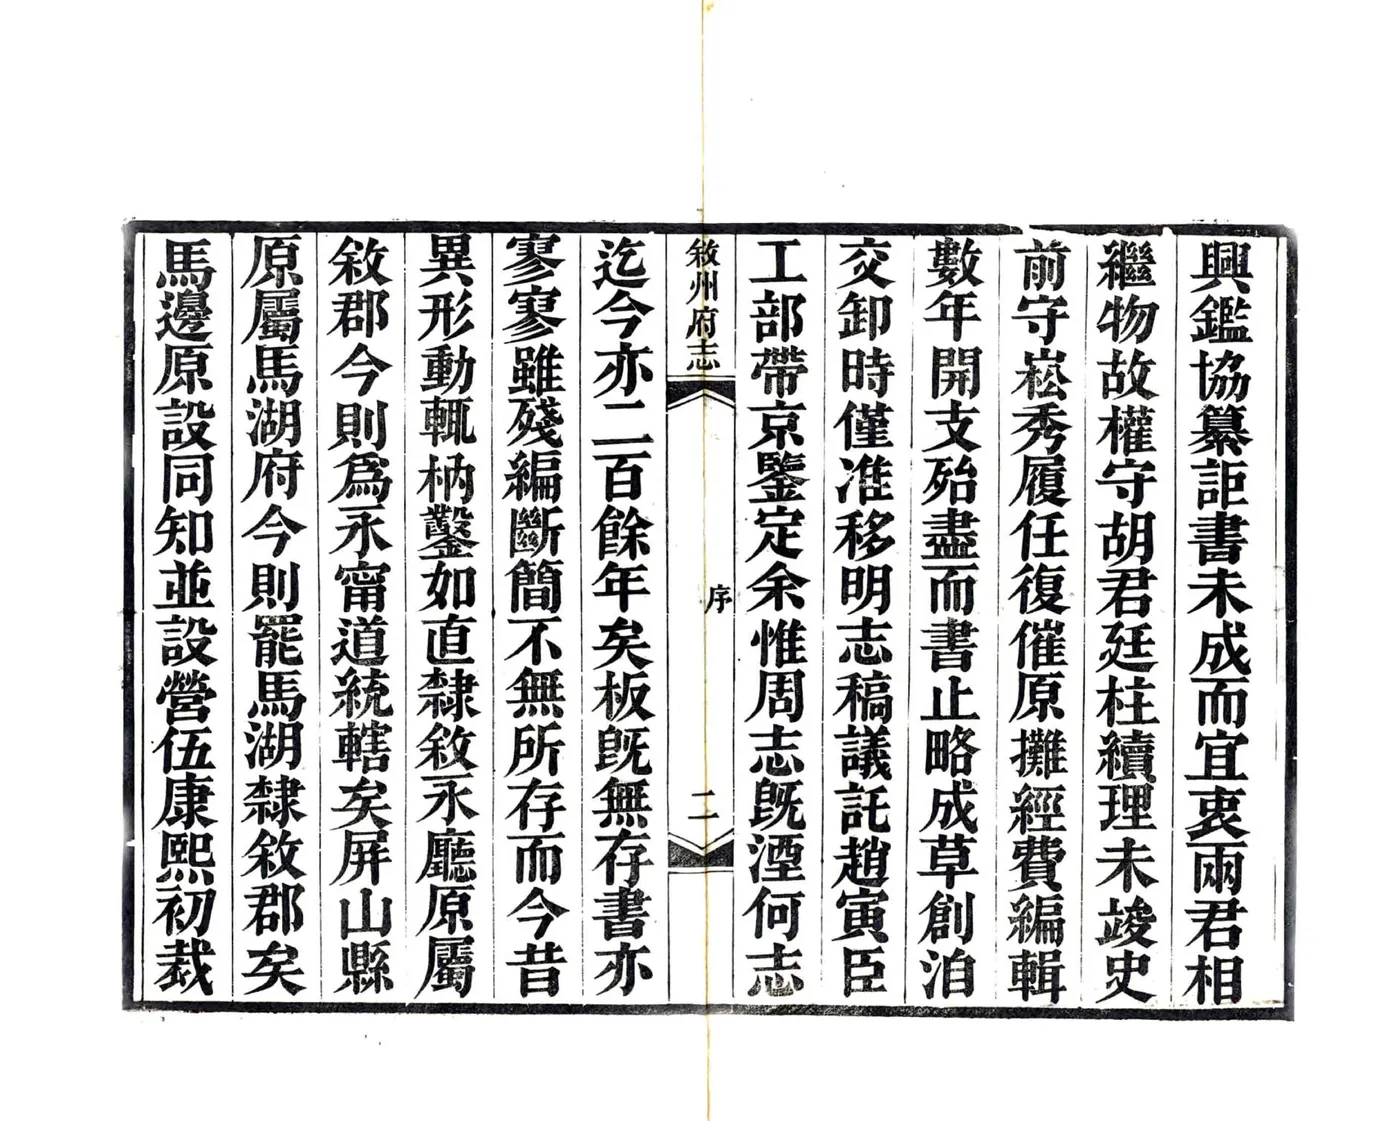 興鑑協纂詎書未成而宜衷兩君相
繼物故權守胡君廷柱續理未竣史
前守崧秀履任復催原攤經費編輯
數年開支殆盡而書止略成草創洎
交卸時僅准移明志稿議託趙寅臣
工部帶京鑒定余惟周志旣湮何志
敘州府志
序
二
迄今亦二百餘年矣板旣無存書亦
寥寥雖殘編斷簡不無所存而今昔
異形動輒枘鑿如直隸敘永廳原屬
敘郡今則爲永甯道統轄矣屏山縣
原屬馬湖府今則罷馬湖隸敘郡矣
馬邊原設同知並設營伍康熙初裁